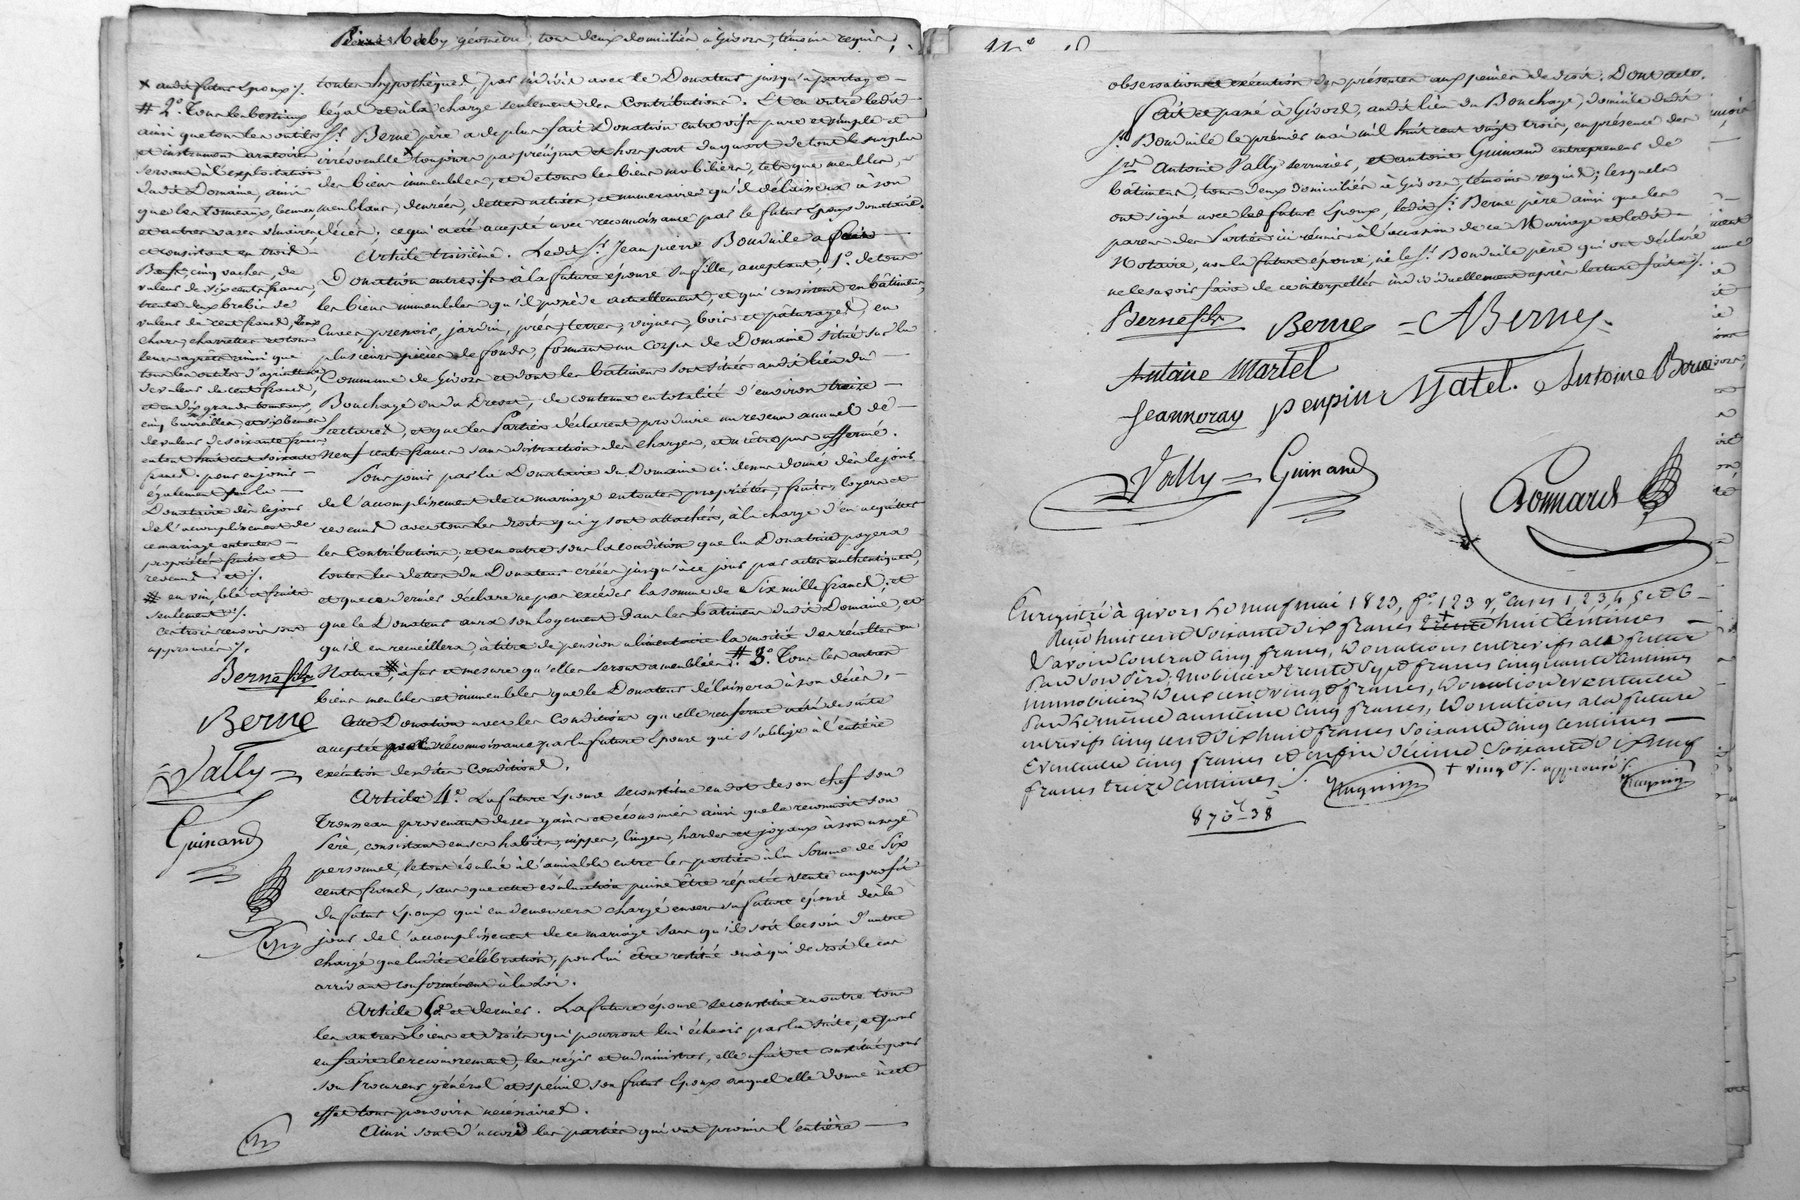 géomètre, tous deux domiciliés à Givors, témoins requis,
toutes hypothèques, par indivis avec le Donateur jusqu'à partage
légal et à la charge seulement des Contributions. Et en outre ledit
Sr. Berne père a de plus fait Donation entre vifs pure et simple et
irrévocable toujours par préciput et hors part du quart de tout le surplus
des biens immeubles, et de tous les biens mobiliers, tels que meubles,
meublans, denrées, dettes actives, et numéraires qu'il délaissera à son
décès, ce qui a été accepté avec reconnaissance par le futur Epoux donataire.
Article troisième. Ledit Sr. Jean pierre Bonduile a fait
Donation entre vifs à la future épouse sa fille, acceptant, 1°. de tous
les biens immeubles qu'il possède actuellement, et qui consistent en bâtimens,
Cuves, pressoir, jardin, prés, terres, vignes, bois et pâturages, en
plusieurs pièces de fonds, formant un Corps de Domaine situé sur la
Commune de Givors et dont les bâtimens sont situés audit lieu du
Bouchage ou du Drevet, de contenue en totalité d'environ treize
hectares, et que les Parties déclarent produire un revenu annuel de
neuf cents francs sans distraction des charges, et n'être pas affermé.
Pour jouir par la Donataire du Domaine ci-dessus donné dès le jour
de l'accomplissement de ce mariage en toutes propriétés, fruits, loyers et
revenus avec tous les droits qui y sont attachés, à la charge d'en acquitter
les Contributions, et en outre sous la condition que la Donatrice payera
toutes les dettes du Donateur créées jusqu'à ce jour par actes authentiques,
et que ce dernier déclare ne pas excéder la somme de Six mille francs; et
que le Donateur aura son logement dans les bâtimens dudit Domaine, et
qu'il en recueillera, à titre de pension alimentaire la moitié des récoltes en
Nature #, à fur et mesure qu'elles seront ameublées. # 3°. Tous les autres
biens meubles et immeubles que le Donateur délaissera à son décès,
Cette Donation avec les Conditions qu'elle renferme a été de suite
acceptée avec reconnaissance par la future Epouse qui s'oblige à l'entière
exécution desdites Conditions.
Article 4e. La future Epouse se constitue en dot de son chef son
Trousseau provenant de ses gains et économies ainsi que le reconnoit son
Père, consistant en ses habits, nippes, linges, hardes et joyaux à son usage
personnel, le tout évalué à l'amiable entre les parties à la Somme de Six
cents francs, sans que cette évaluation puisse être réputée vente au profit
du futur Epoux qui en demeurera chargé envers sa future épouse dès le
jour de l'accomplissement de ce mariage sans qu'il soit besoin d'autre
charge que ladite célébration, pour lui être restitué ou à qui de droit le cas
arrivant conformément à la Loi.
Article 5e. et dernier. La future épouse se constitue en outre tous
les autres biens et droits qui pourront lui échoir par la suite, et pour
en faire le recouvrement, les régir et administrer, elle a fait et constitué pour
son Procureur général et spécial son futur Epoux auquel elle donne à cet
effet tous pouvoirs nécessaires.
Ainsi sont d'accord les parties qui ont promis l'entière
× audit futur Epoux ./.
# 2°. Tous les bestiaux
ainsi que tous les outils
et instrumens aratoires
servant à l'exploitation
dudit Domaine, ainsi
que les tonneaux, bennes
et autres vases vinaires
et consistant en trois
Boeufs, cinq vaches, de
valeur de six cents francs,
trente deux brebis de
valeur de cent francs, deux
chars, charrettes et tous
leurs agrès ainsi que
tous les outils d'agriculture
de valeur de cent francs,
et en dix grands tonneaux,
cinq barreilles, et six bennes
de valeur de soixante francs
en tout huit cent soixante
francs; pour en jouir
également par la
Donataire dès le jour
de l'accomplissement de
ce mariage en toutes
propriétés fruits et
revenus; et ./.
# en vin, blé et fruits
seulement ./.
Ces trois renvois sont
approuvés ./.
Berne fils
Berne
Vally
Guinand
observation et exécution des présentes aux peines de droit. Dont acte.
Fait et passé à Givors, audit lieu du Bouchage, domicile dudit
Sr. Bonduile le premier mai mil huit cent vingt trois, en présence des
Srs. Antoine Vally serrurier, et antoine Guinand entrepreneur de
bâtimens, tous deux domiciliés à Givors, témoins requis; lesquels
ont signé avec le futur Epoux, ledit Sr. Berne père ainsi que les
parens des Parties ici réunis à l'occasion de ce Mariage et ledit
Notaire, non la future épouse, ni le Sr. Bonduile père qui ont déclaré
ne le savoir faire de ce interpellés individuellement après lecture faite ./.
Berne fils Berne = A Berne
Antoine Martel
Jeannoray penpin Matel. Antoine Berne
Vally = Guinand
Bonnard
Enregistré à givors Le neuf mai 1823, f° 123 v° cases 1,2,3,4,5 et 6
Reçu huit cent soixante dix francs trente huit centimes
Savoir Contrat Cinq francs, Donations entrevifs au futur
par son père; mobilière trente Sept francs cinquante centimes
immobilière Deux cent vingt francs, Donation eventuelle
par Le même au même Cinq francs, Donations a la future
entrevifs cinq cent dix huit francs soixante cinq centimes
Eventuelle cinq francs et enfin Décime Soixante dix neuf
francs treize centimes ./. + vingt ./. approuvé ./.
870 - 38